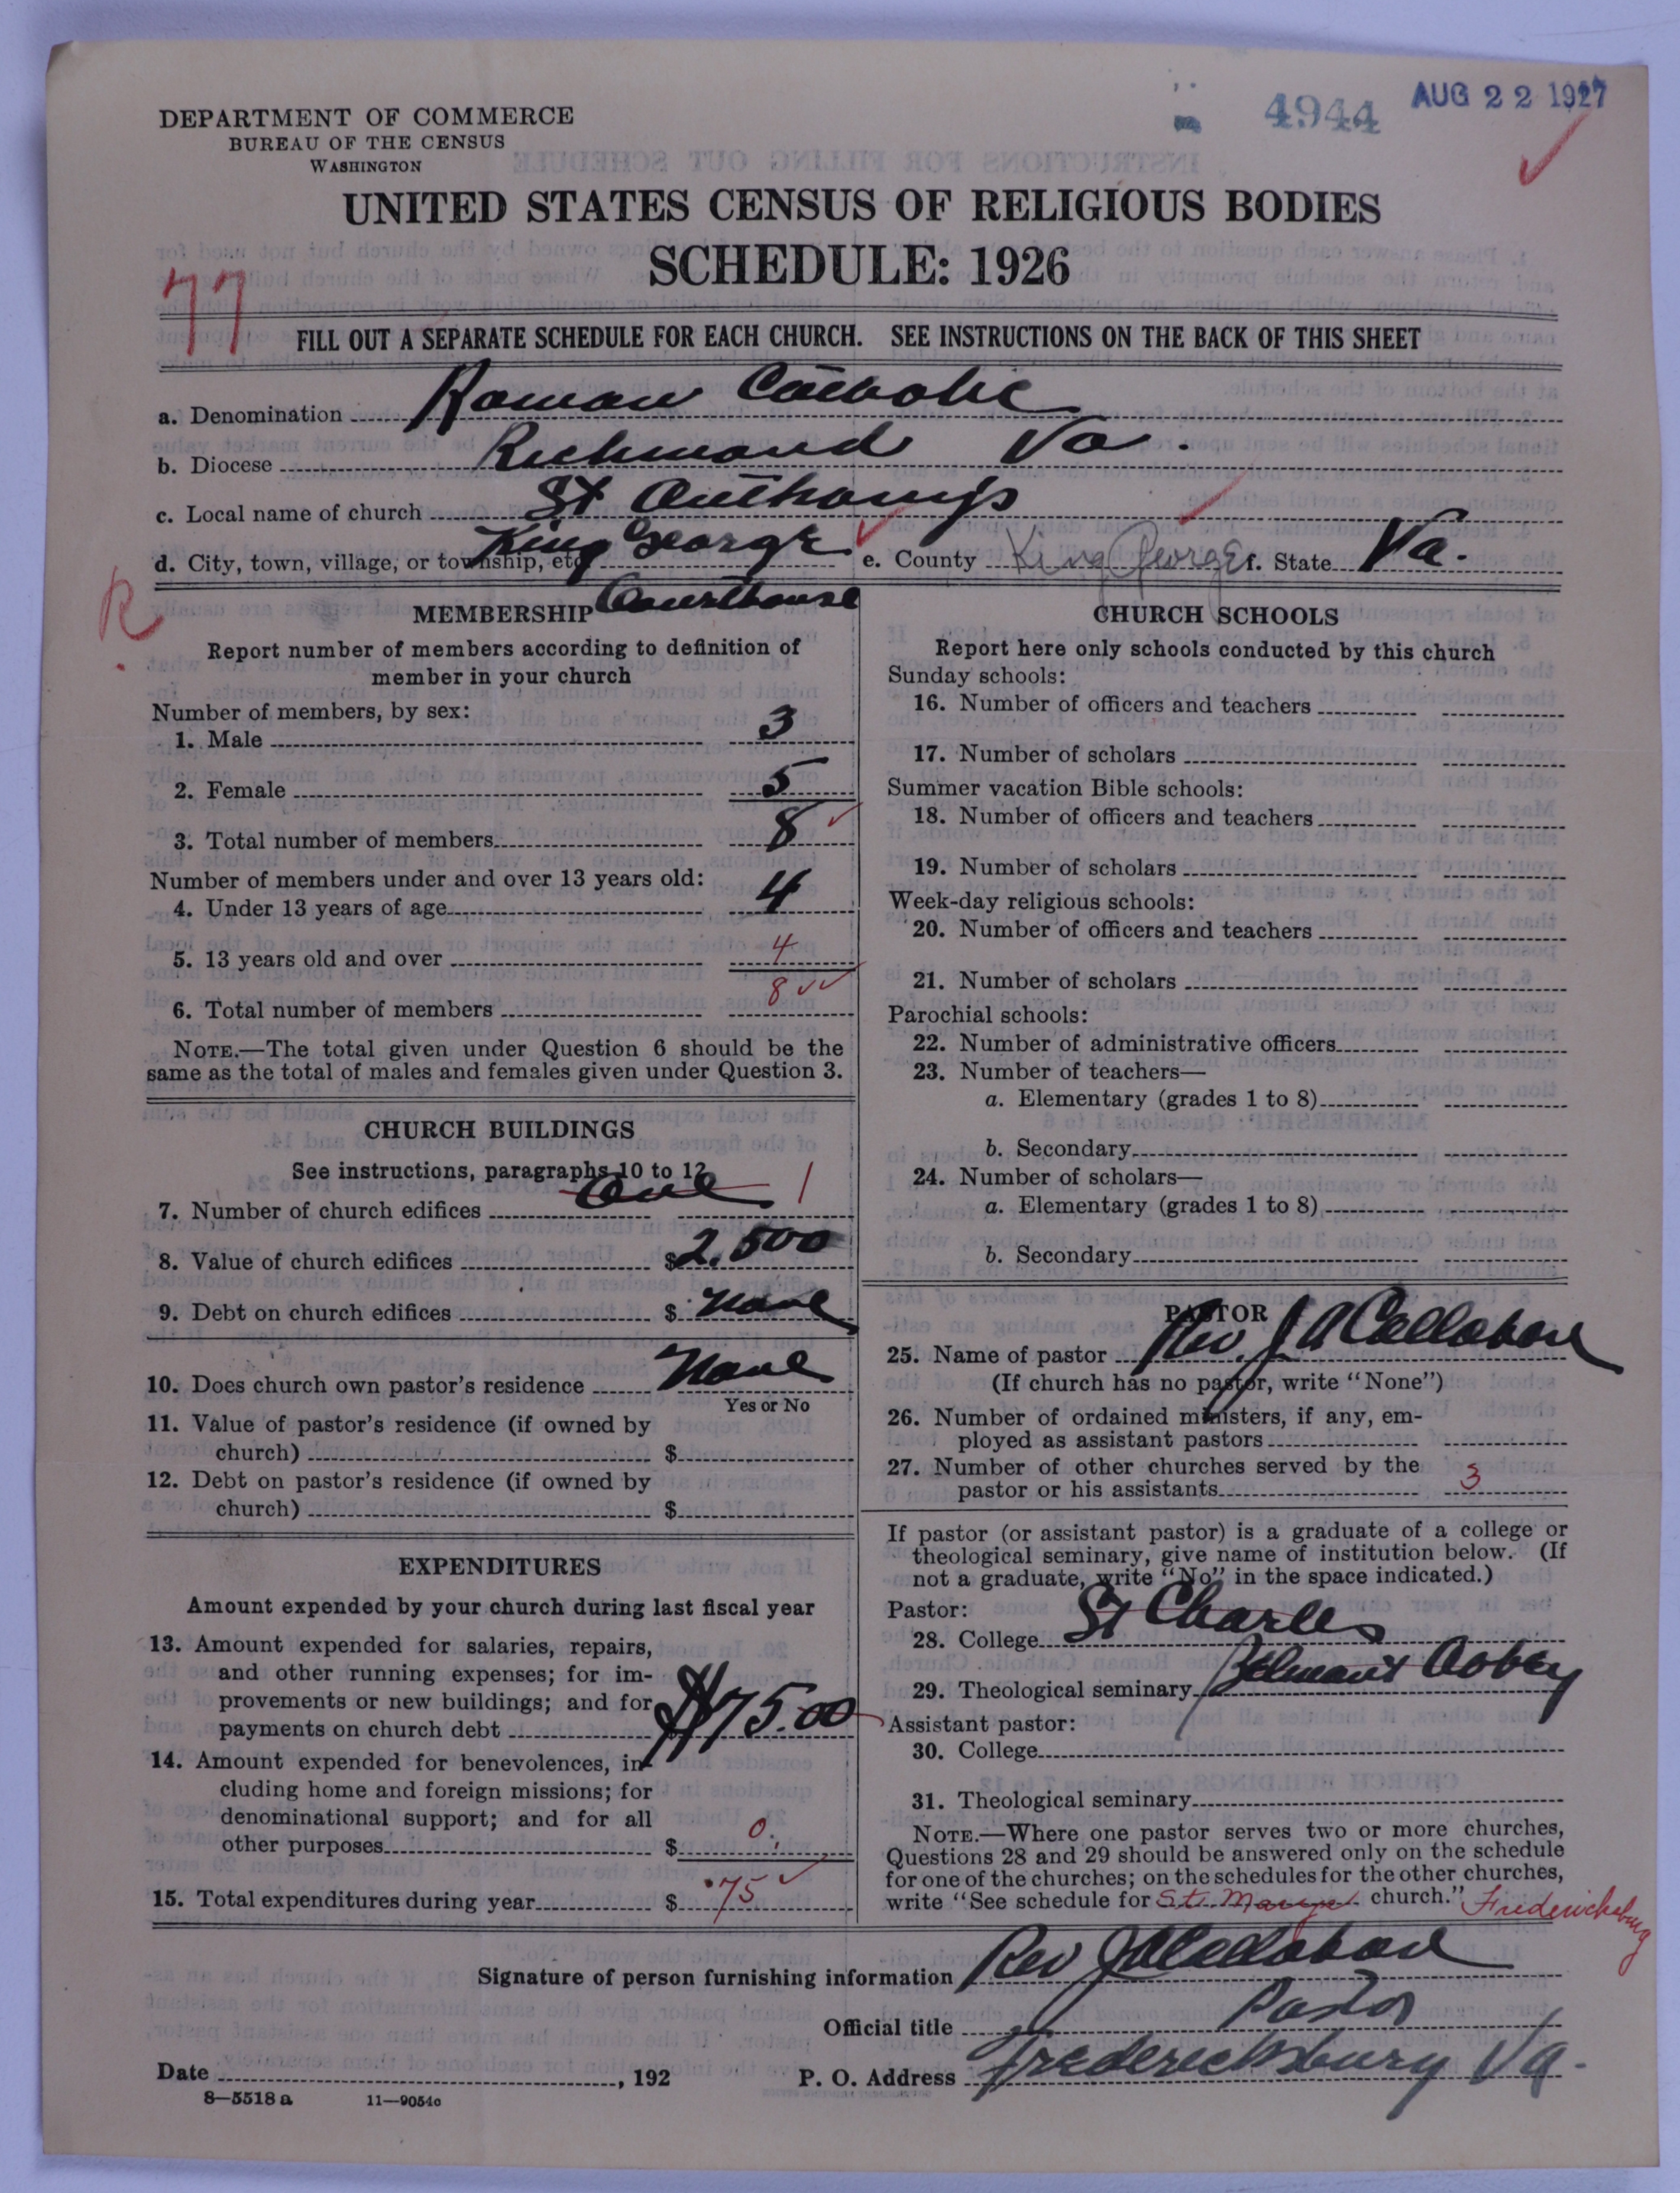 4944 AUG 22 1927
DEPARTMENT OF COMMERCE
BUREAU OF THE CENSUS
WASHINGTON
UNITED STATES CENSUS OF RELIGIOUS BODIES
SCHEDULE: 1926
77
FILL OUT A SEPARATE SCHEDULE FOR EACH CHURCH. SEE INSTRUCTIONS ON THE BACK OF THIS SHEET
a. Denomination Roman Catholic
b. Diocese Richmond Va.
c. Local name of church St Anthonys
d. City, town, village, or township, etc. King George Courthouse e. County King George f. State Va.
R.
MEMBERSHIP
Report number of members according to definition of
member in your church
Number of members, by sex:
1. Male 3
2. Female 5
3. Total number of members 8
Number of members under and over 13 years old:
4. Under 13 years of age 4
5. 13 years old and over 4
6. Total number of members 8
NOTE.—The total given under Question 6 should be the
same as the total of males and females given under Question 3.
CHURCH BUILDINGS
See instructions, paragraphs 10 to 12
7. Number of church edifices One 1
8. Value of church edifices $2,500
9. Debt on church edifices $ None
10. Does church own pastor's residence None
Yes or No
11. Value of pastor's residence (if owned by
church) $
12. Debt on pastor's residence (if owned by
church) $
EXPENDITURES
Amount expended by your church during last fiscal year
13. Amount expended for salaries, repairs,
and other running expenses; for im-
provements or new buildings; and for
payments on church debt $75.00
14. Amount expended for benevolences, in-
cluding home and foreign missions; for
denominational support; and for all
other purposes $ 0
15. Total expenditures during year $ 75
CHURCH SCHOOLS
Report here only schools conducted by this church
Sunday schools:
16. Number of officers and teachers
17. Number of scholars
Summer vacation Bible schools:
18. Number of officers and teachers
19. Number of scholars
Week-day religious schools:
20. Number of officers and teachers
21. Number of scholars
Parochial schools:
22. Number of administrative officers
23. Number of teachers—
a. Elementary (grades 1 to 8)
b. Secondary
24. Number of scholars—
a. Elementary (grades 1 to 8)
b. Secondary
PASTOR
25. Name of pastor Rev. J A Callahan
(If church has no pastor, write "None")
26. Number of ordained ministers, if any, em-
ployed as assistant pastors
27. Number of other churches served by the
pastor or his assistants 3
If pastor (or assistant pastor) is a graduate of a college or
theological seminary, give name of institution below. (If
not a graduate, write "No" in the space indicated.)
Pastor:
28. College St Charles
29. Theological seminary Belmont Abbey
Assistant pastor:
30. College
31. Theological seminary
NOTE.—Where one pastor serves two or more churches,
Questions 28 and 29 should be answered only on the schedule
for one of the churches; on the schedules for the other churches,
write "See schedule for St. Marys church." Fredericksburg
Signature of person furnishing information Rev J A Callahan
Official title Pastor
Date , 192 P. O. Address Fredericksburg Va.
8—5518 a 11—9054c